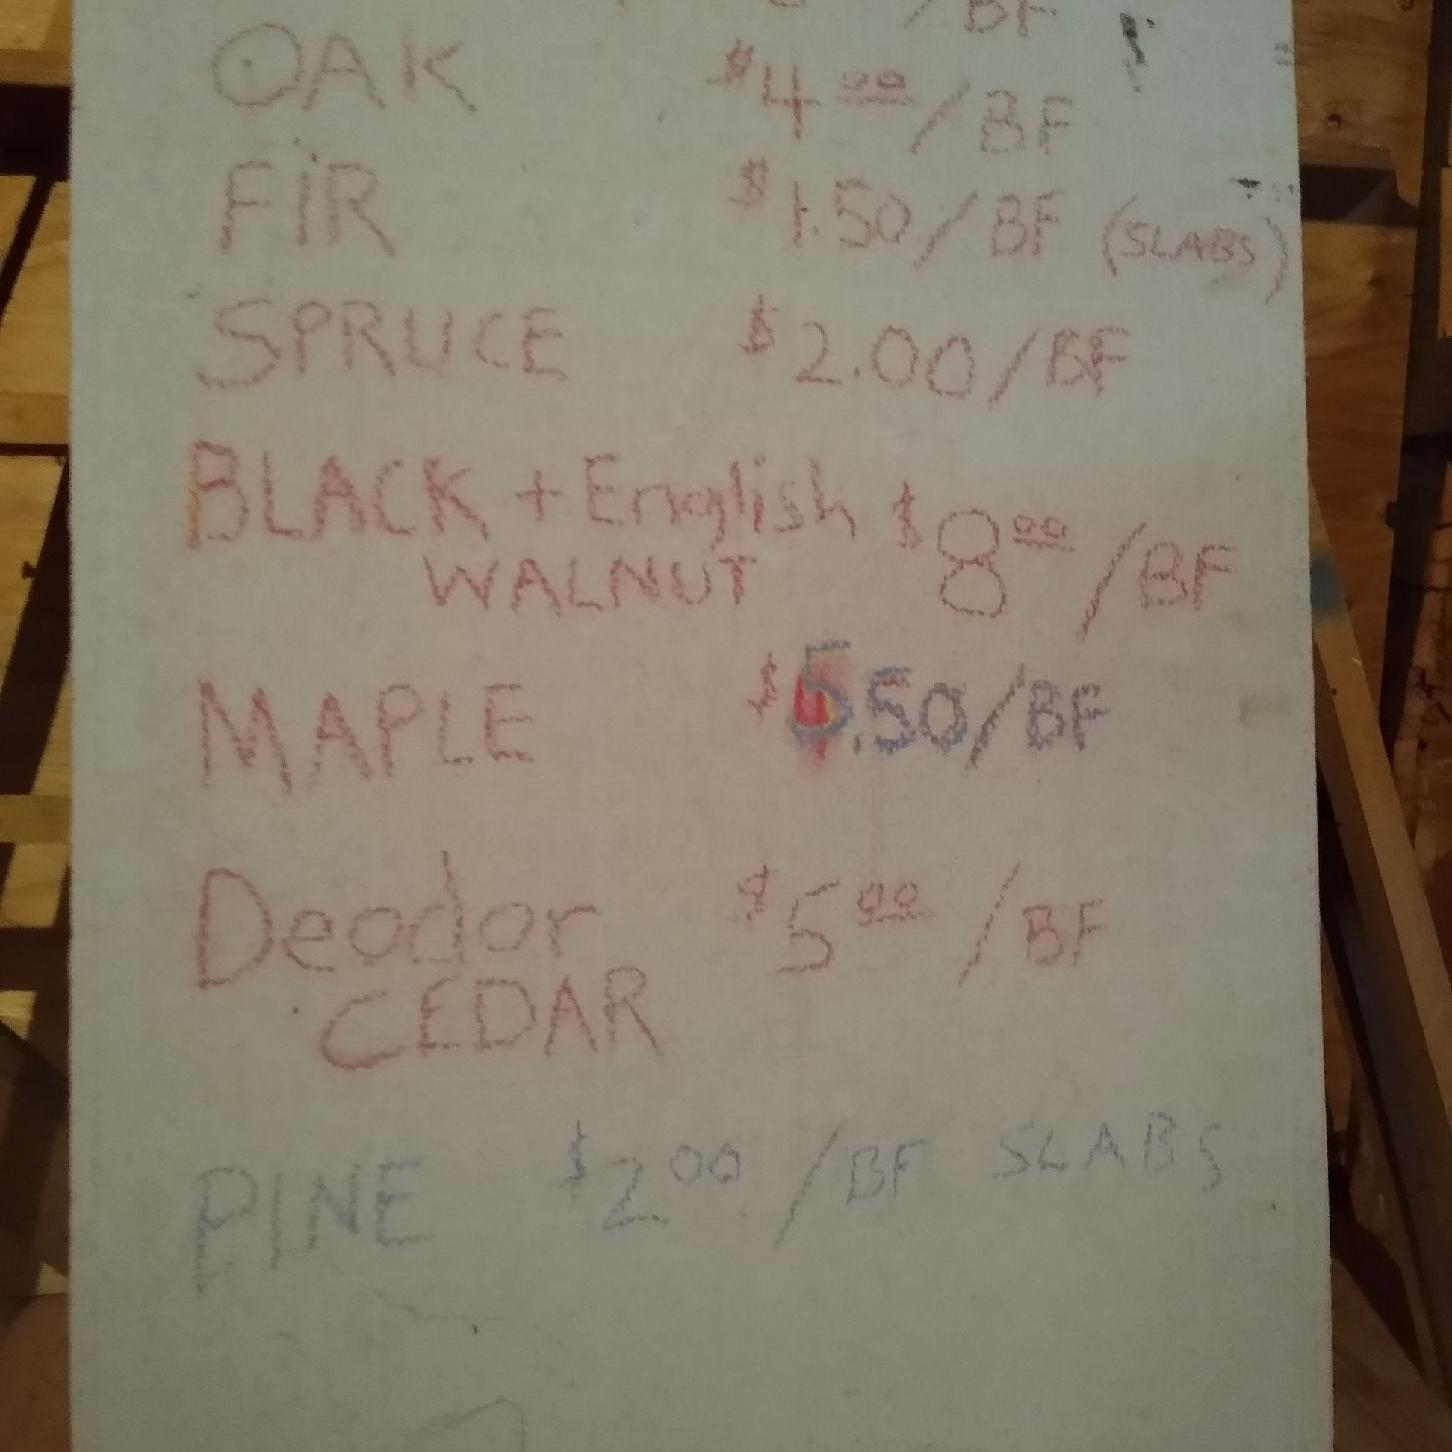 /BF
OAK $4.00/BF
FIR $1.50/BF (SLABS)
SPRUCE $2.00/BF
BLACK + English $8.00/BF
WALNUT
MAPLE $5.50/BF
Deodor $5.00/BF
CEDAR
PINE $2.00/BF SLABS